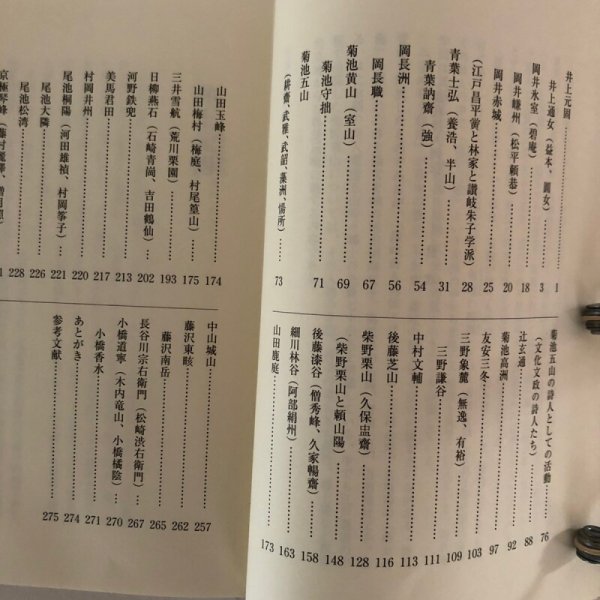 井上元固……1
井上通女（益本、圓女）…3
岡井氷室（碧庵）……18
岡井嵰州（松平頼恭）……20
岡井赤城……25
（江戸昌平黌と林家と讃岐朱子学派）…28
青葉士弘（養浩、半山）……31
青葉訥齋（強）……54
岡長洲……56
岡長職……67
菊池黄山（室山）……69
菊池守拙……71
菊池五山
（耕齋、武雅、武韶、藻洲、惕所）……73
菊池五山の詩人としての活動……76
（文化文政の詩人たち）……88
辻玄通……92
菊池高洲……97
友安三冬……103
三野象麓（無逸、有裕）……109
三野謙谷……111
中村文輔……113
後藤芝山……116
柴野栗山（久保盅齋）……128
（柴野栗山と頼山陽）……148
後藤漆谷（僧秀峰、久家暢齋）…158
細川林谷（阿部絹州）……163
山田鹿庭……173
山田玉峰……174
山田梅村（梅庭、村尾篁山）……175
三井雪航（荒川栗園）……193
日柳燕石（石崎青崗、吉田鶴仙）……202
河野鉄兜……213
美馬君田……217
村岡井州……220
尾池桐陽（河田雄禎、村岡箏子）……221
尾池大隣……226
尾池松湾……228
京極琴峰（藤村
中山城山……257
藤沢東畡……262
藤沢南岳……265
長谷川宗右衛門（松崎渋右衛門）…267
小橋道寧（木内竜山、小橋橘陰）…270
小橋香水……271
あとがき……274
参考文献……275